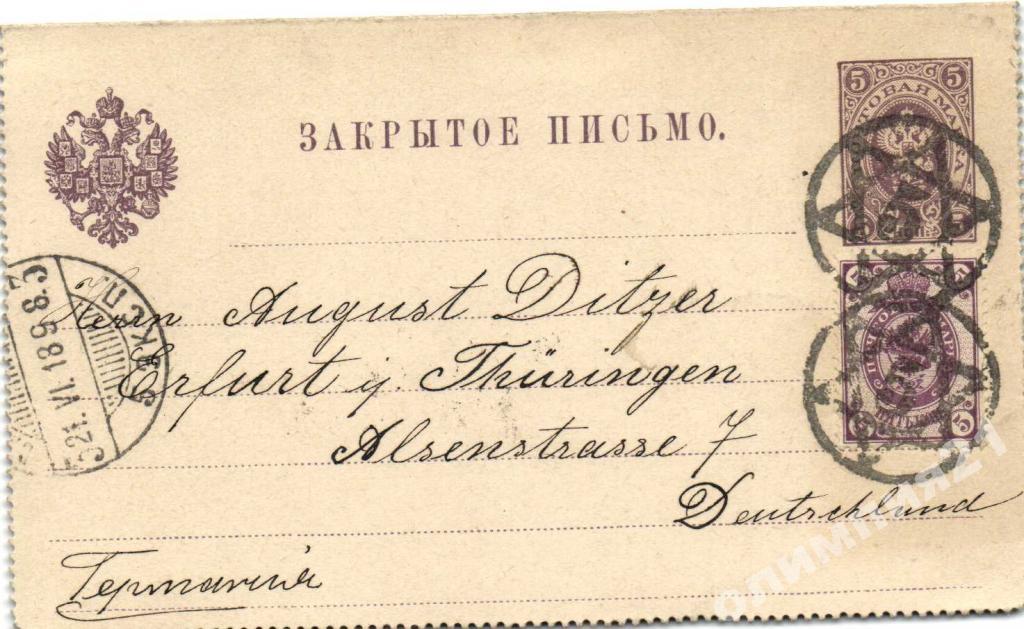 ЗАКРЫТОЕ ПИСЬМО.
5 5
5 5
Herrn August Ditzer
Erfurt i/ Thüringen
Alsenstrasse 7
Deutschland
Германія
21. VI. 189
5 5
5 5
олимпия21